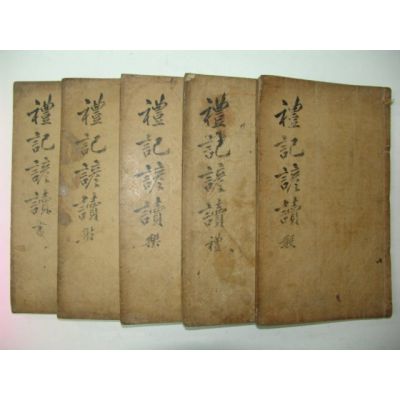 禮記諺讀
禮記諺讀 禮
禮記諺讀 樂
禮記諺讀
禮記諺讀 書